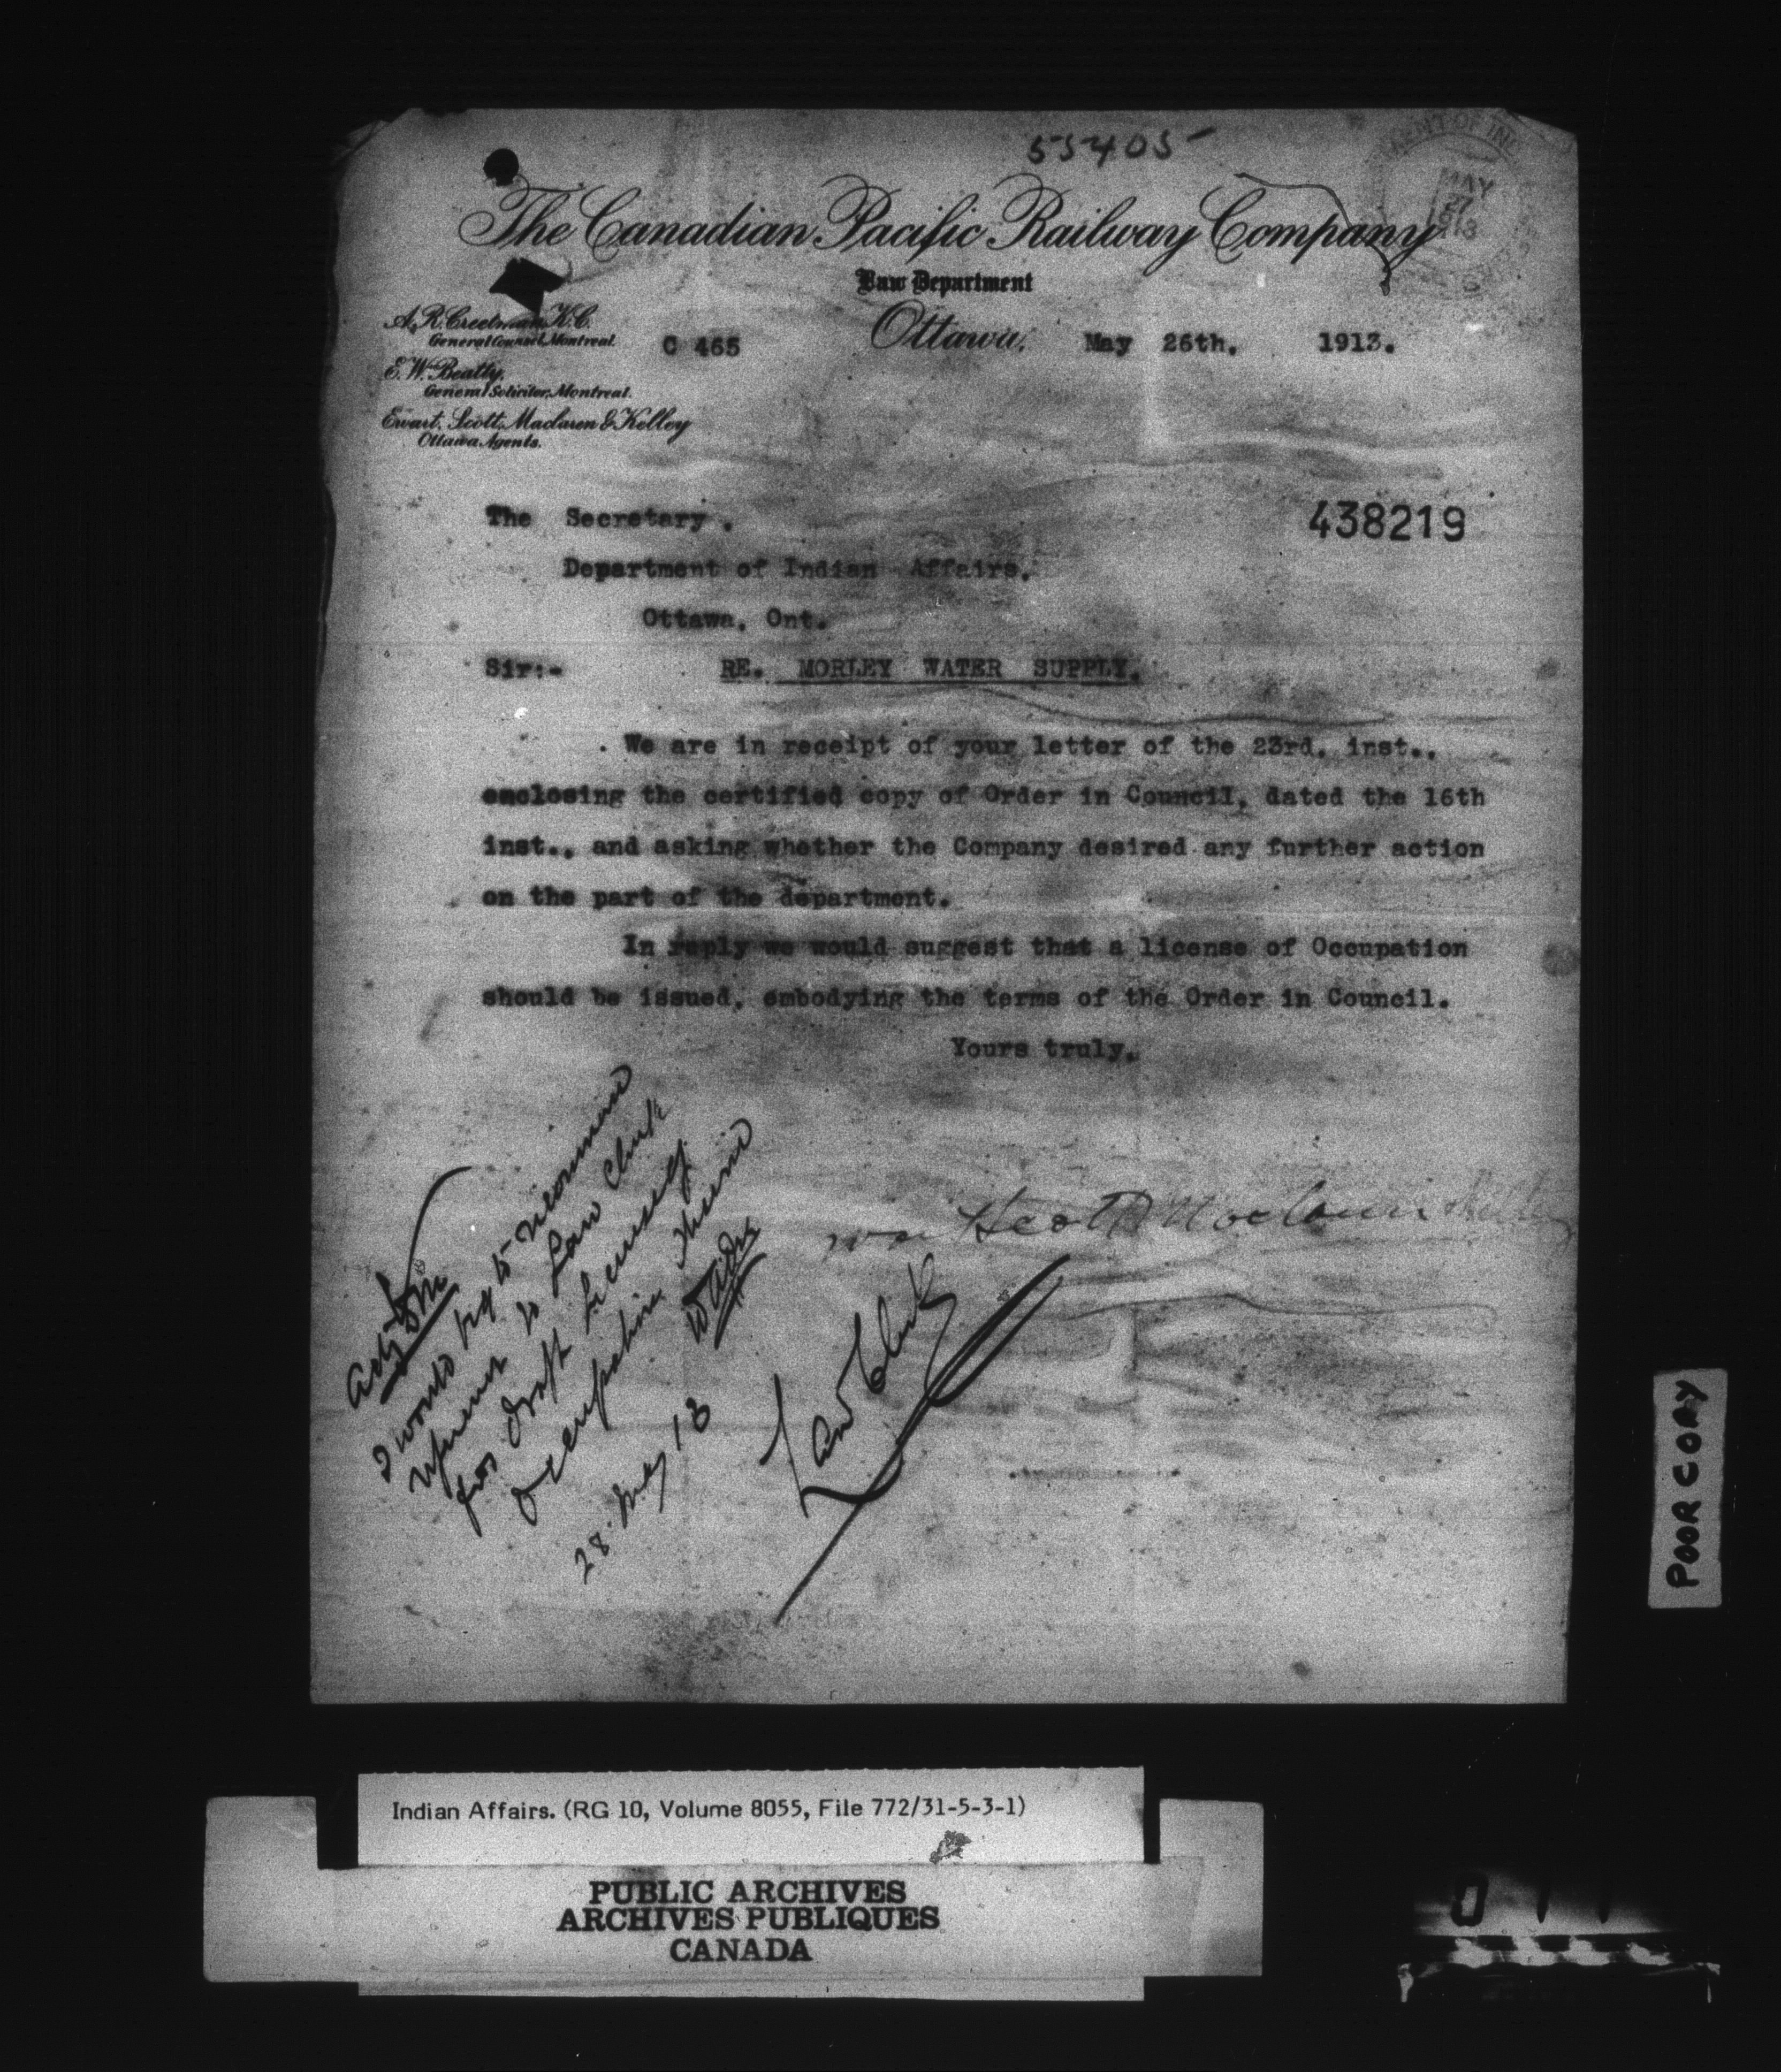 55405
MAY
27
1913
The Canadian Pacific Railway Company
Law Department
A.R. Creelman, K.C.
General Counsel, Montreal.
C 465
Ottawa, May 26th, 1913.
E.W. Beatty,
General Solicitor, Montreal.
Ewart, Scott, Maclaren & Kelley
Ottawa Agents.
The Secretary.
438219
Department of Indian Affairs.
Ottawa, Ont.
Sir:-
RE. MORLEY WATER SUPPLY.
We are in receipt of your letter of the 23rd. inst.,
enclosing the certified copy of Order in Council, dated the 16th
inst., and asking whether the Company desired any further action
on the part of the department.
In reply we would suggest that a license of Occupation
should be issued, embodying the terms of the Order in Council.
Yours truly,
Scott Maclaren Kelley
I would beg to recommend
reference to Law Clerk
for draft license of
occupation
28 May 13
Law Clerk
POOR COPY
Indian Affairs. (RG 10, Volume 8055, File 772/31-5-3-1)
PUBLIC ARCHIVES
ARCHIVES PUBLIQUES
CANADA
0 1 1